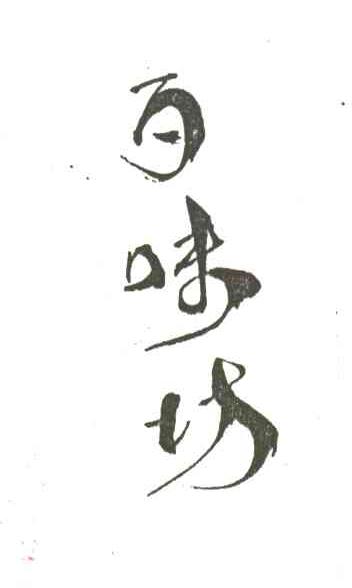 百味坊